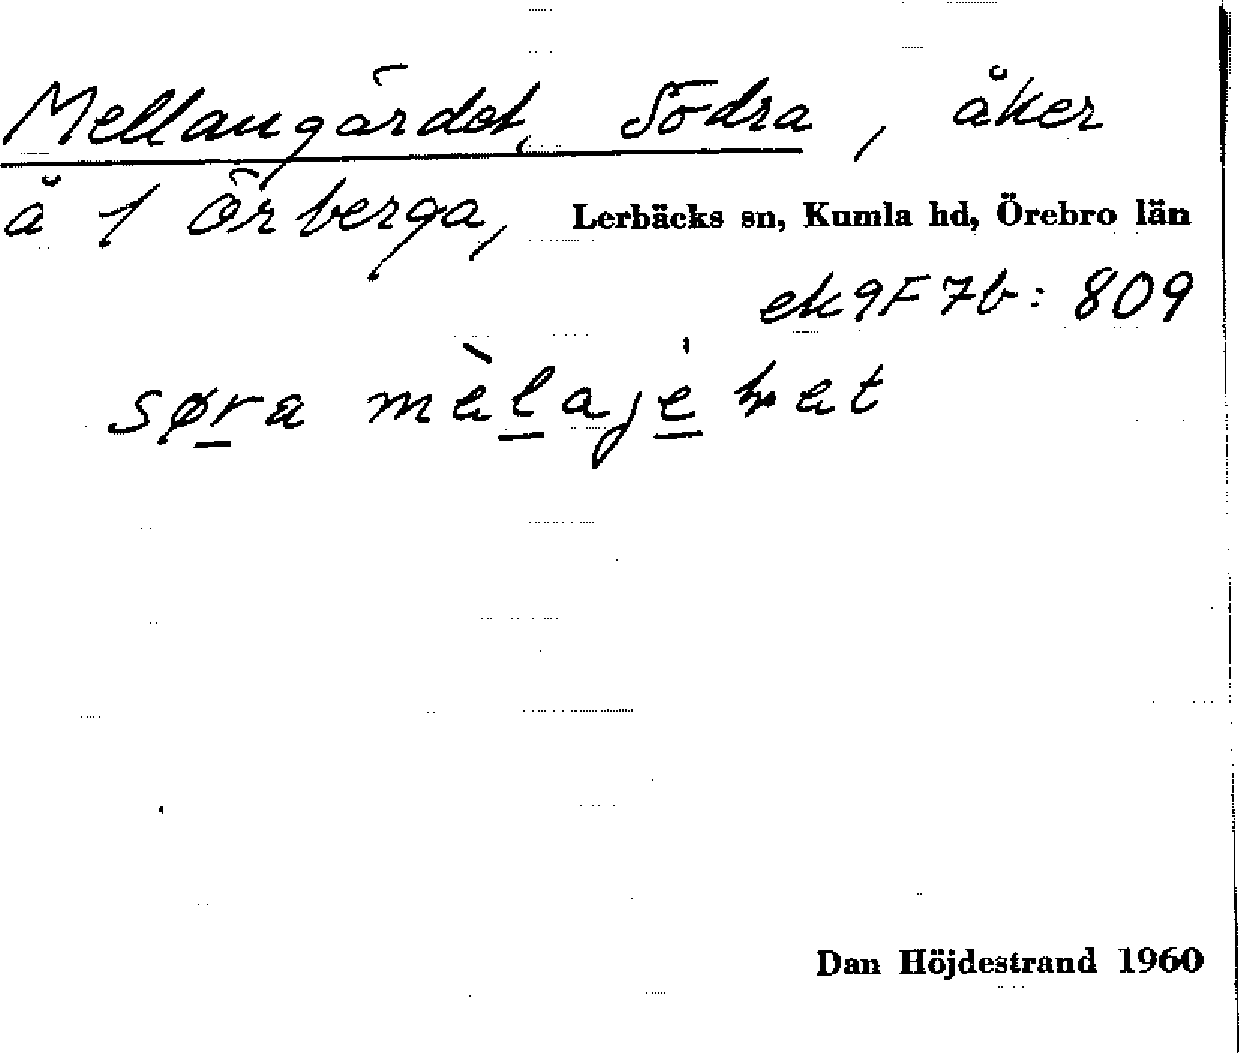 Mellangärdet, Södra, åker
å 1 Örberga, Lerbäcks sn, Kumla hd, Örebro län
ek 9F7b: 809
søra
Dan Höjdestrand 1960